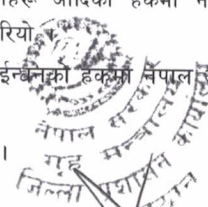 आदिको हकमा
रियो ।
ईन्धनको हकमा नेपाल
।
नेपाल सरकार
गृह मन्त्रालय
जिल्ला प्रशासन कार्यालय